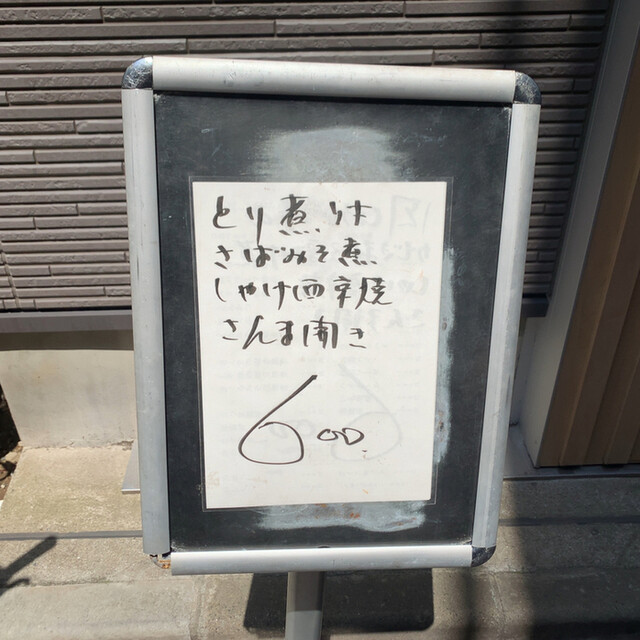 とり煮
さばみそ煮
しゃけ西京焼
さんま開き
600